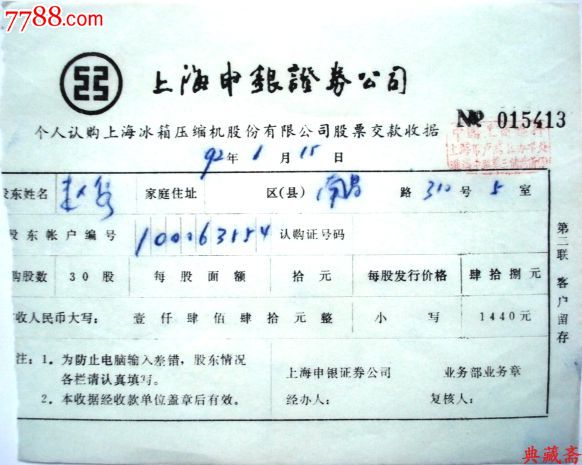 7788.com
上海申銀證券公司
№ 015413
个人认购上海冰箱压缩机股份有限公司股票交款收据
92年 1月 15日
股东姓名 家庭住址 区(县) 南昌 路 310 号 5 室
股东帐户编号 100063154 认购证号码
购股数 30股 每股面额 拾元 每股发行价格 肆拾捌元
收人民币大写: 壹仟肆佰肆拾元整 小写 1440元
注: 1. 为防止电脑输入差错,股东情况
各栏请认真填写。
2. 本收据经收款单位盖章后有效。
上海申银证券公司 业务部业务章
经办人: 复核人:
第二联 客户留存
典藏斋